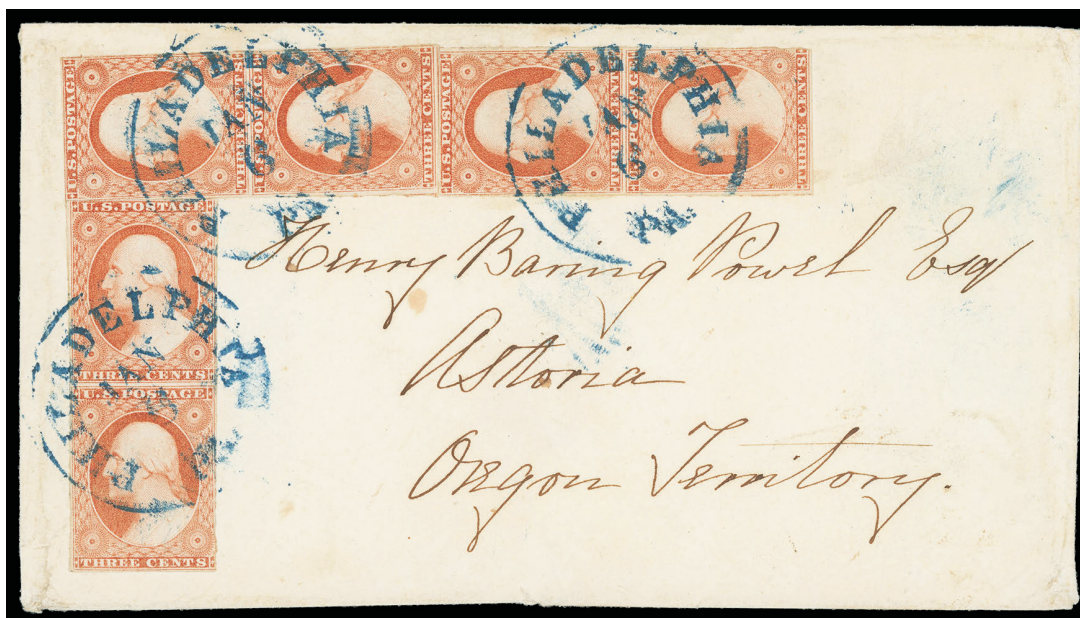 U.S. POSTAGE
THREE CENTS
U.S. POSTAGE
THREE CENTS
U.S. POSTAGE
THREE CENTS
U.S. POSTAGE
THREE CENTS
PHILADELPHIA
JAN
6
PA.
PHILADELPHIA
JAN
6
PA.
U.S. POSTAGE
THREE CENTS
U.S. POSTAGE
THREE CENTS
PHILADELPHIA
JAN
Henry Baring Powel Esq
Astoria
Oregon Territory.